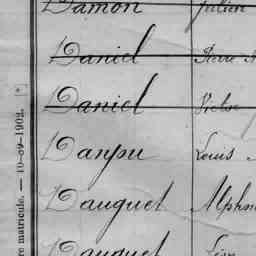 Damon Julien
Daniel Pierre
Daniel Victor
Danpu Louis
Dauguet Alphon
Dauguet Léon
re matricule. — 10-89-1902.